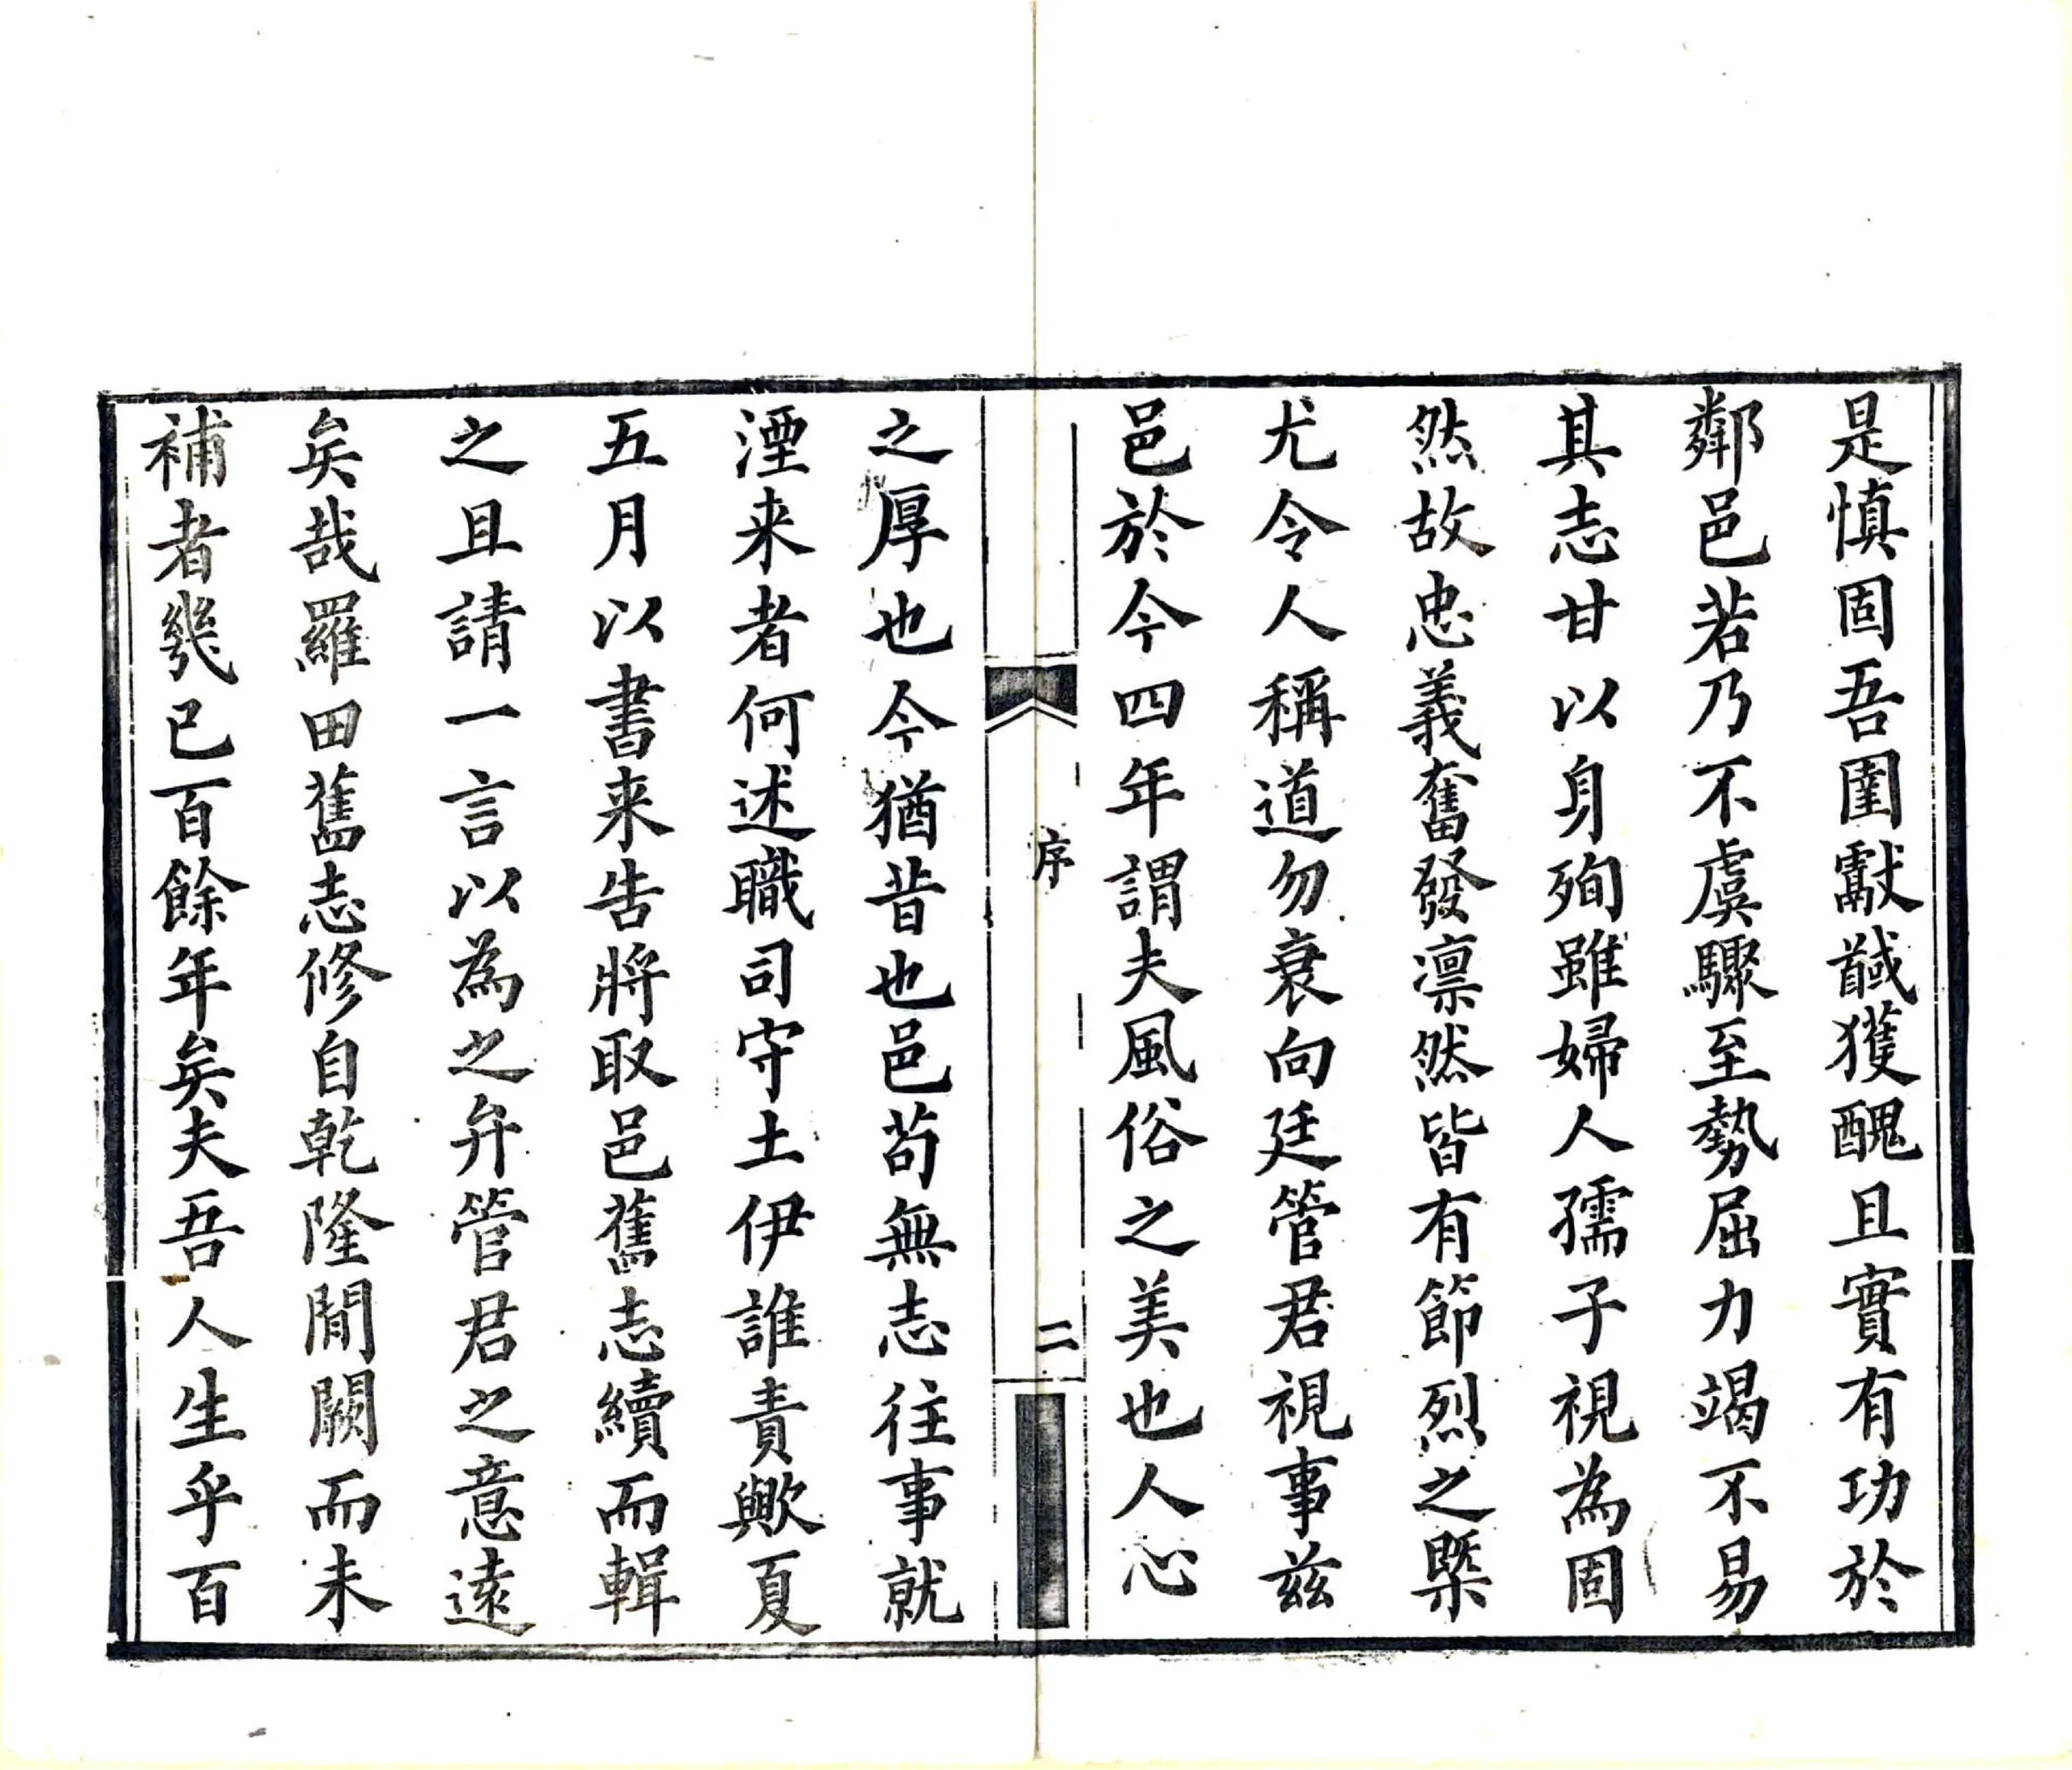 是慎固吾圉獻馘獲醜且實有功於
鄰邑若乃不虞驟至勢屈力竭不易
其志甘以身殉雖婦人孺子視為固
然故忠義奮發凛然皆有節烈之槩
尤令人稱道勿衰向廷管君視事茲
邑於今四年謂夫風俗之美也人心
序
二
之厚也今猶昔也邑苟無志往事就
湮来者何述職司守土伊誰責歟夏
五月以書来告將取邑舊志續而輯
之且請一言以為之弁管君之意遠
矣哉羅田舊志修自乾隆間闕而未
補者幾已百餘年矣夫吾人生乎百